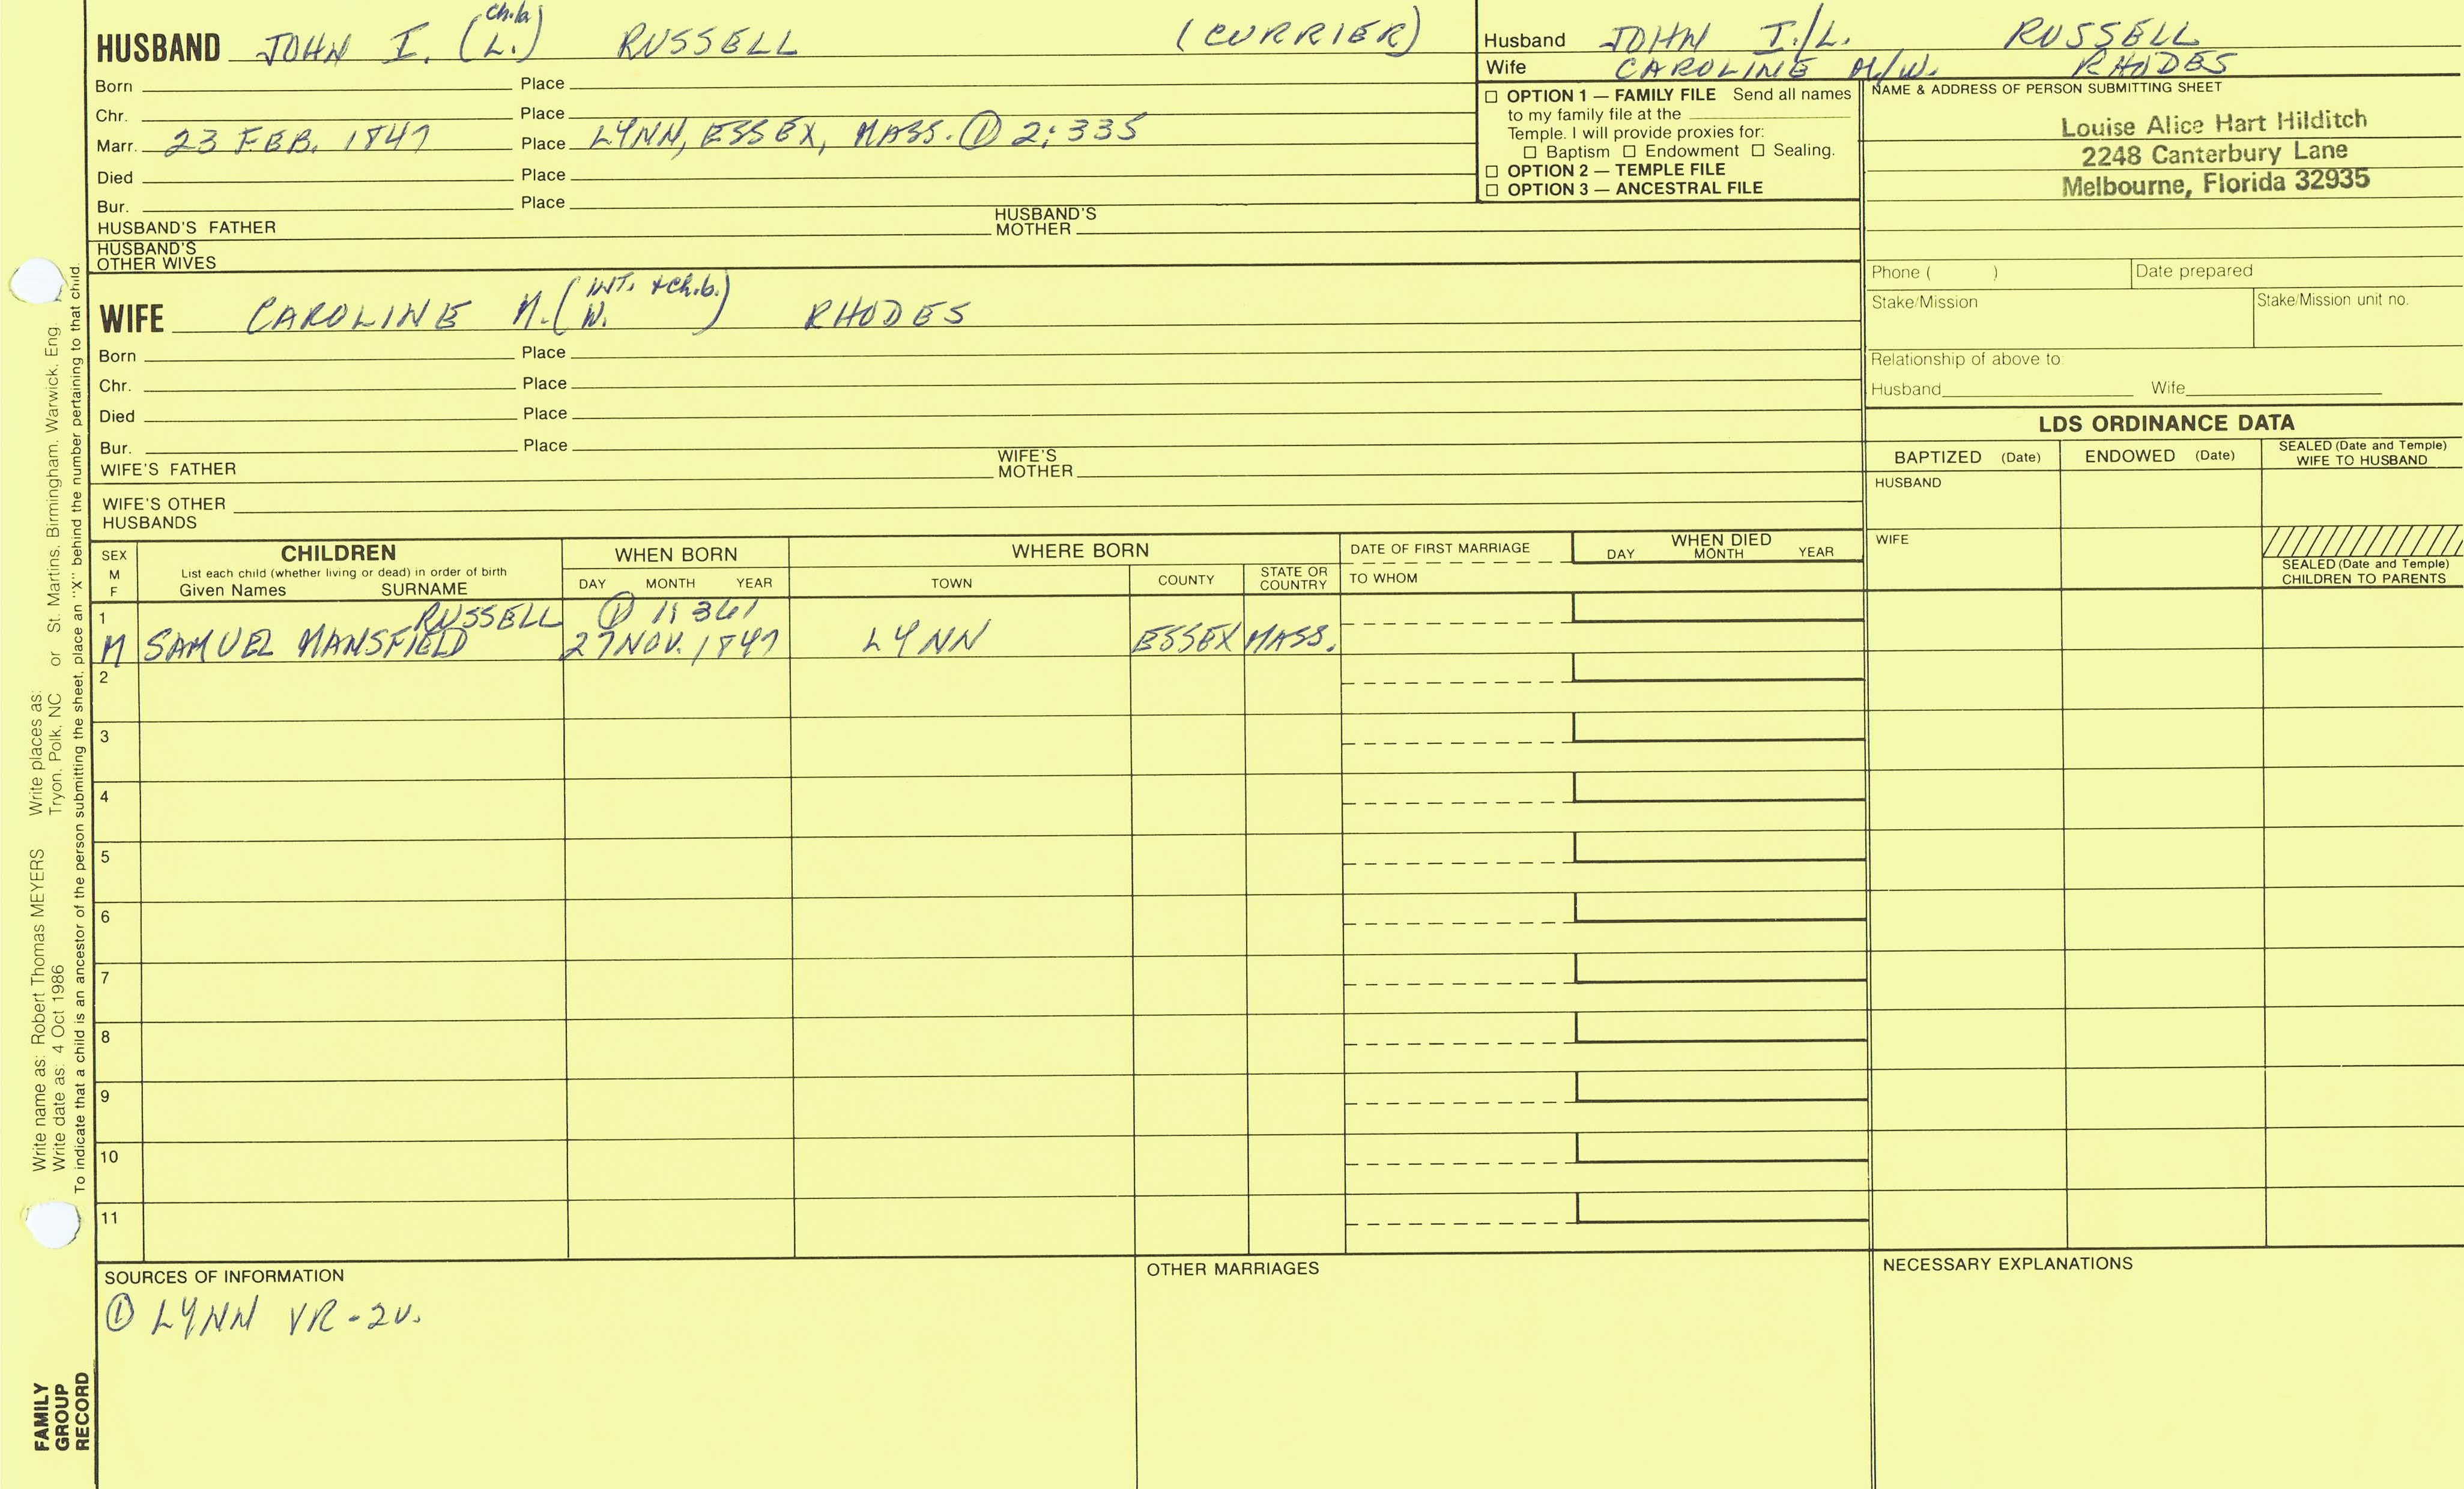 HUSBAND JOHN I. (L.) ch.b. RUSSELL (CURRIER)
Born Place
Chr. Place
Marr. 23 FEB. 1847 Place LYNN, ESSEX, MASS. ① 2:335
Died Place
Bur. Place
HUSBAND'S FATHER HUSBAND'S MOTHER
HUSBAND'S OTHER WIVES
Husband JOHN I./L. RUSSELL
Wife CAROLINE M/W. RHODES
☐ OPTION 1 — FAMILY FILE Send all names
to my family file at the
Temple. I will provide proxies for:
☐ Baptism ☐ Endowment ☐ Sealing.
☐ OPTION 2 — TEMPLE FILE
☐ OPTION 3 — ANCESTRAL FILE
NAME & ADDRESS OF PERSON SUBMITTING SHEET
Louise Alice Hart Hilditch
2248 Canterbury Lane
Melbourne, Florida 32935
Phone ( ) Date prepared
Stake/Mission Stake/Mission unit no.
Relationship of above to:
Husband Wife
WIFE CAROLINE M. (W. INT. + ch.b.) RHODES
Born Place
Chr. Place
Died Place
Bur. Place
WIFE'S FATHER WIFE'S MOTHER
WIFE'S OTHER HUSBANDS
LDS ORDINANCE DATA
BAPTIZED (Date) ENDOWED (Date) SEALED (Date and Temple) WIFE TO HUSBAND
HUSBAND
WIFE
SEALED (Date and Temple) CHILDREN TO PARENTS
SEX M F
CHILDREN
List each child (whether living or dead) in order of birth
Given Names SURNAME
WHEN BORN
DAY MONTH YEAR
WHERE BORN
TOWN COUNTY STATE OR COUNTRY
DATE OF FIRST MARRIAGE
TO WHOM
WHEN DIED
DAY MONTH YEAR
1 RUSSELL ① 1:361
M SAMUEL MANSFIELD 27 NOV. 1847 LYNN ESSEX MASS.
2
3
4
5
6
7
8
9
10
11
SOURCES OF INFORMATION
① LYNN VR-2v.
OTHER MARRIAGES
NECESSARY EXPLANATIONS
Write name as: Robert Thomas MEYERS Write places as:
Write date as: 4 Oct 1986 Tryon, Polk, NC or St. Martins, Birmingham, Warwick, Eng.
To indicate that a child is an ancestor of the person submitting the sheet, place an "X" behind the number pertaining to that child.
FAMILY
GROUP
RECORD